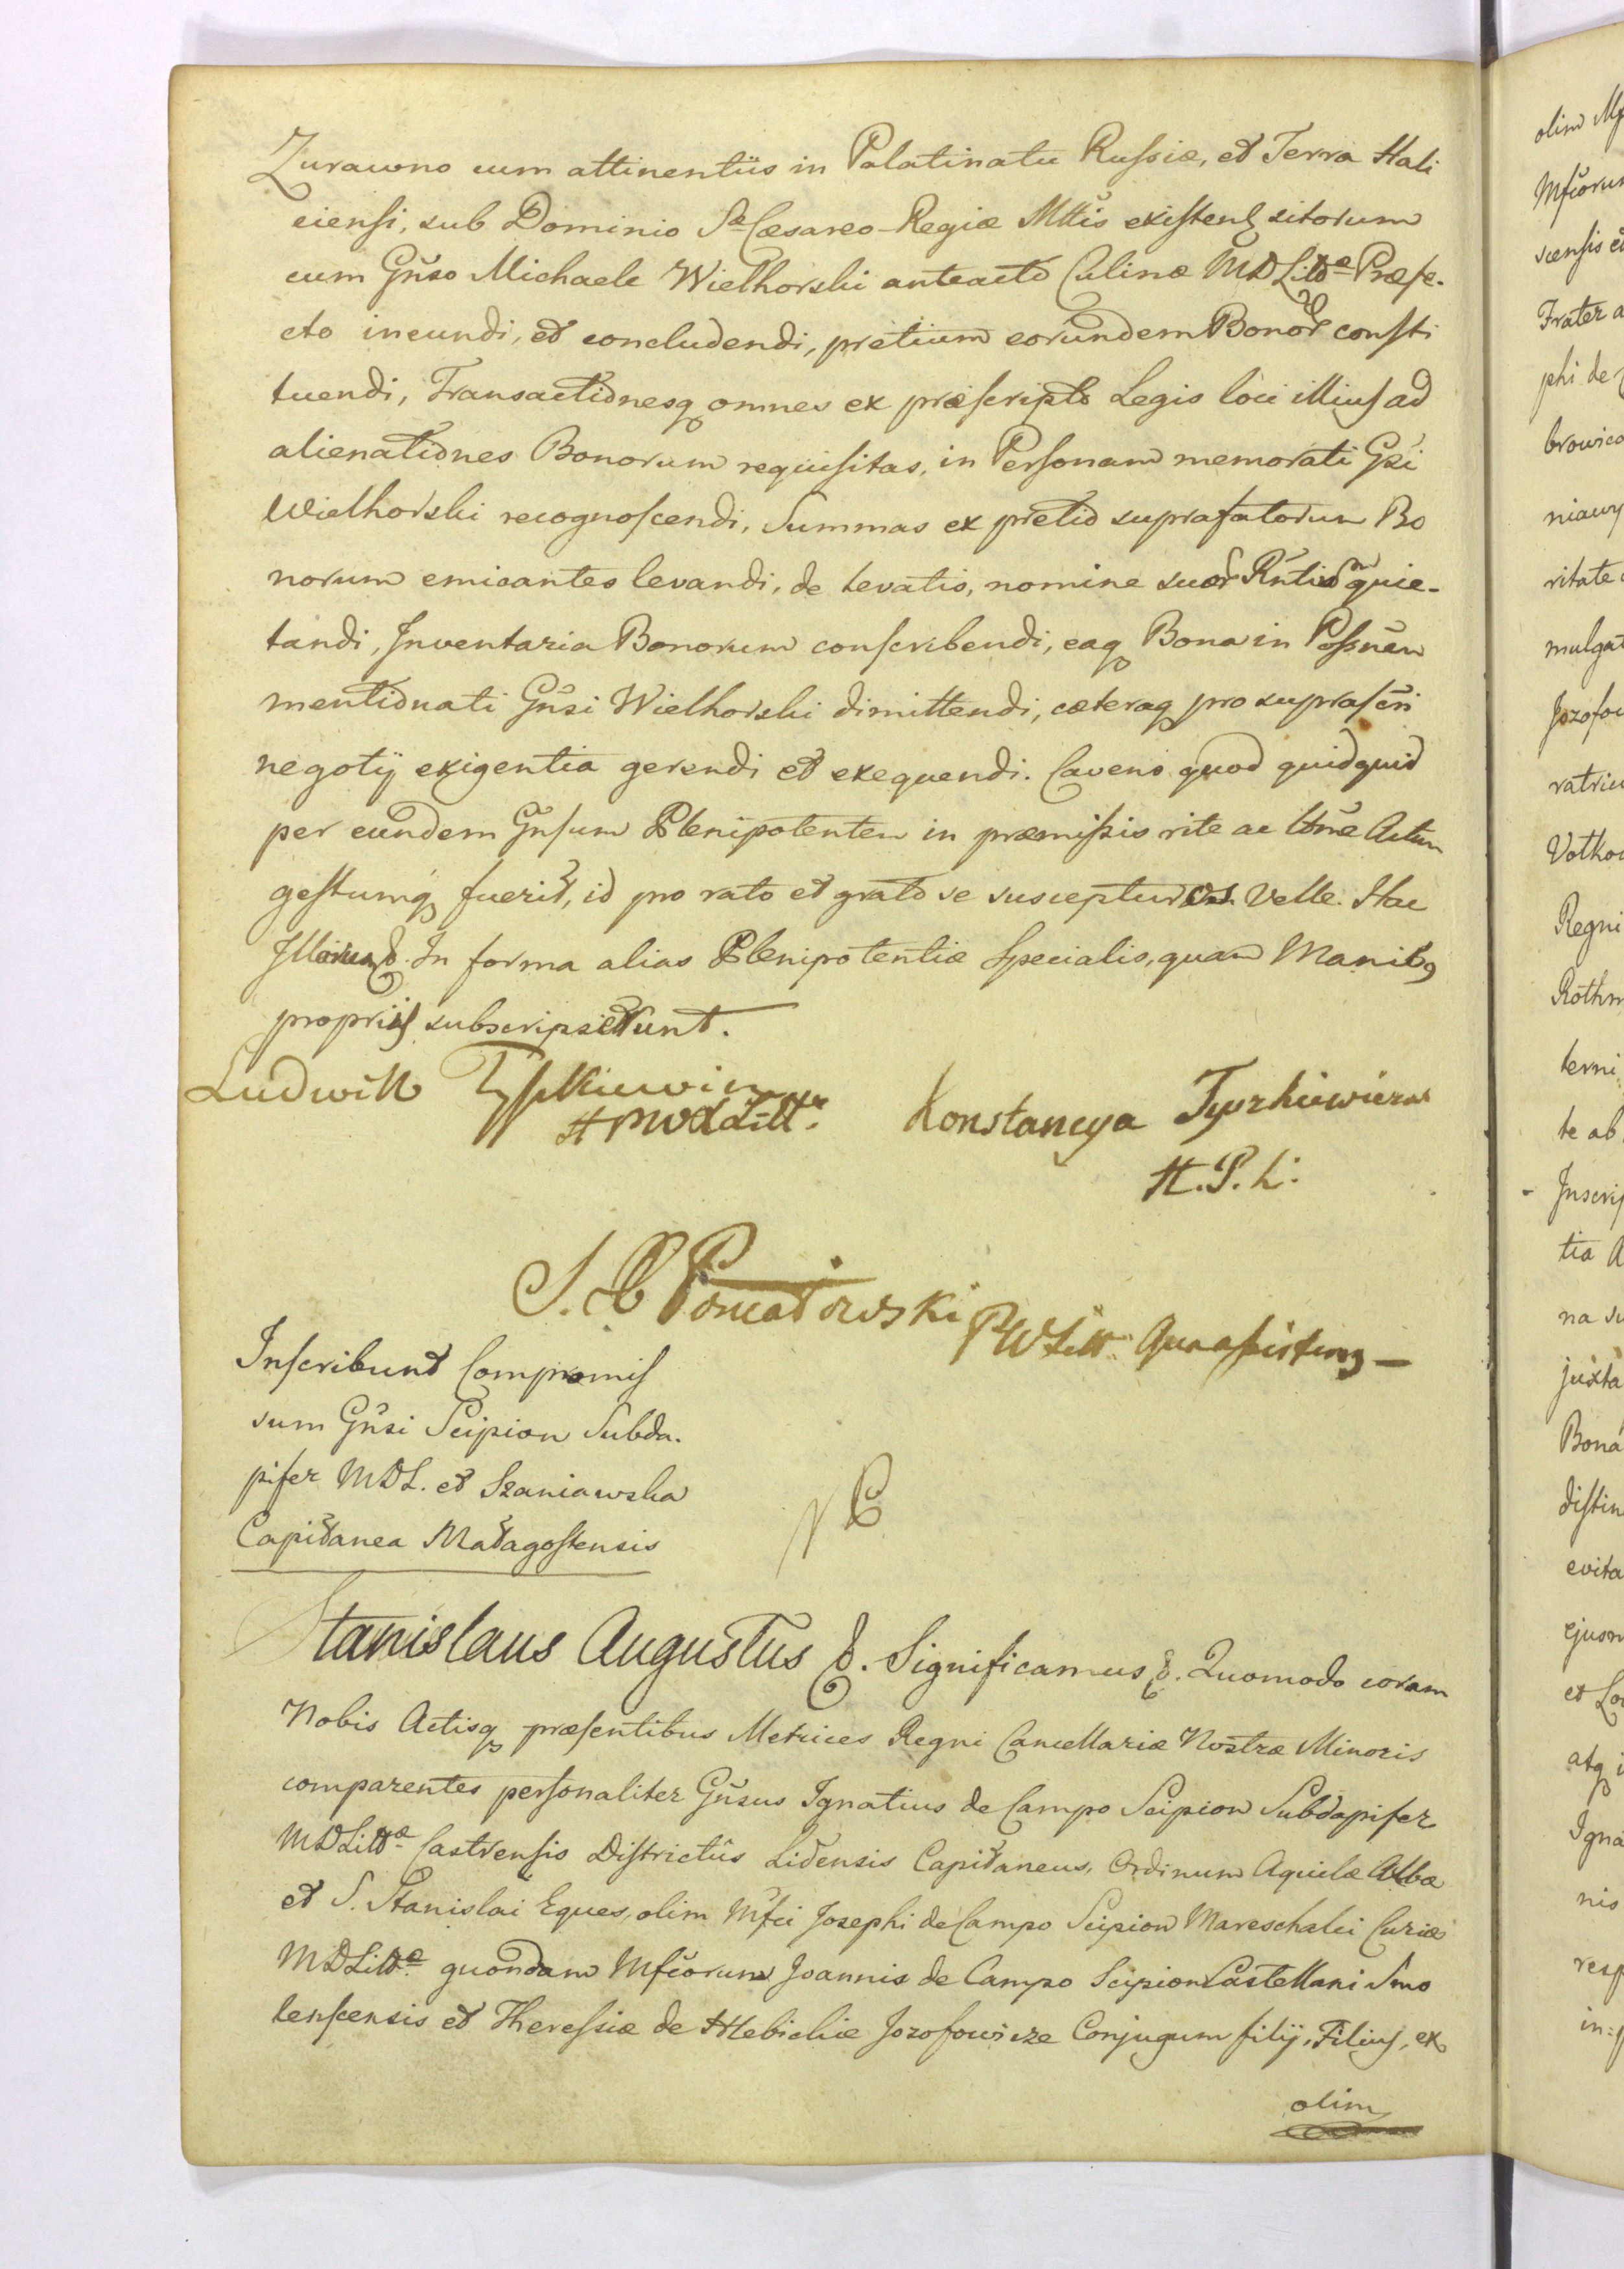 Zurawno cum attinentiis in Palatinatu Russiæ, et Terra Hali
ciensi, sub Dominio Sæ Cæsareo-Regiæ Mttis existen. sitorum
cum Gñso Michaele Wielhorski anteacto Culinæ MDLittæ Præfe-
cto ineundi, et concludendi, pretium eorundem Bonor consti
tuendi, Transactionesq omnes ex præscripto Legis loci illius ad
alienationes Bonorum requisitas, in Personam memorati Gsi
Wielhorski recognoscendi, Summas ex pretio suprafatorum Bo
norum emicantes levandi, de levatis, nomine suor Rntiu quie-
tandi, Inventaria Bonorum conscribendi, eaq Bona in Possnem
mentionati Gñsi Wielhorski dimittendi, cæteraq pro suprascri
negotij exigentia gerendi et exequendi. Cavens quod quidquid
per eundem Gnsum Plenipotentem in præmissis rite ac ltme Actum
gestumq fuerit, id pro rato et grato se suscepturos velle. Hac
In forma alias Plenipotentiæ Specialis, quam Manib9
propriis subscripserunt.
Ludwik Tyszkiewicz Konstancya Tyszkiewiczow
H P W X Litt. H. P. L.
S. X Poniatowski
PWLitt.
Inscribunt Compromis
sum Gñsi Scipion Subda.
pifer MDL. et Szaniawska
Capitanea Małagostensis
Stanislaus Augustus &. Significamus &. Quomodo coram
Nobis Actisq præsentibus Metrices Regni Cancellariæ Nostræ Minoris
comparentes personaliter Gñsus Ignatius de Campo Scipion Subdapifer
MDLittæ Castrensis Districtûs Lidensis Capitaneus, Ordinum Aquilæ Albæ
et S. Stanislai Eques, olim Mfci Josephi de Campo Scipion Mareschalci Curiæ
MDLittæ quondam Mfcorum Joannis de Campo Scipion Castellani Smo
lenscensis et Theressiæ de Hlebickie Jozofowicze Conjugum filij, Filius, ex
olim
olim
Mfcorum
scensis et
Frater
phi de
browico
niawy
ritate
mulgat
Jozofow
ratriu
Regni
Rothm
terni
te ab
Inscrip
tia
na su
juxta
Bona
distin
evita
ejusm
et Lo
atq
Igna
nis
resp
in